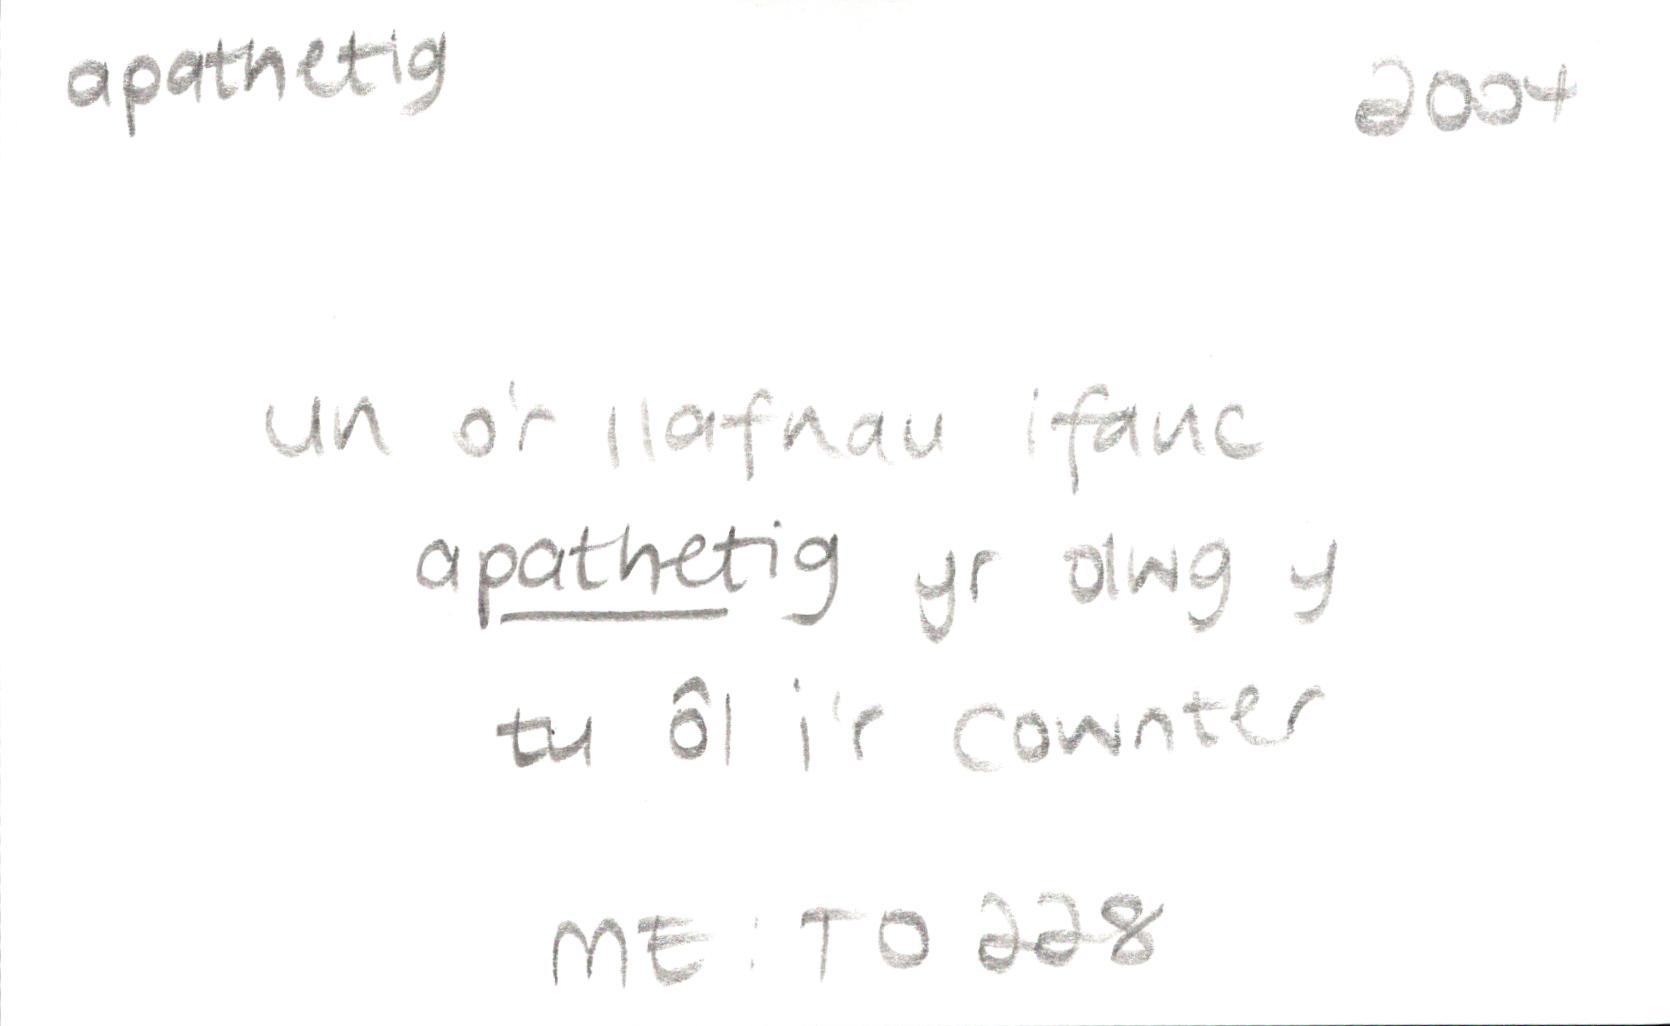 apathetig 2004
un o'r llafnau ifanc
apathetig yr olwg y
tu ôl i'r cownter
ME: TO 228